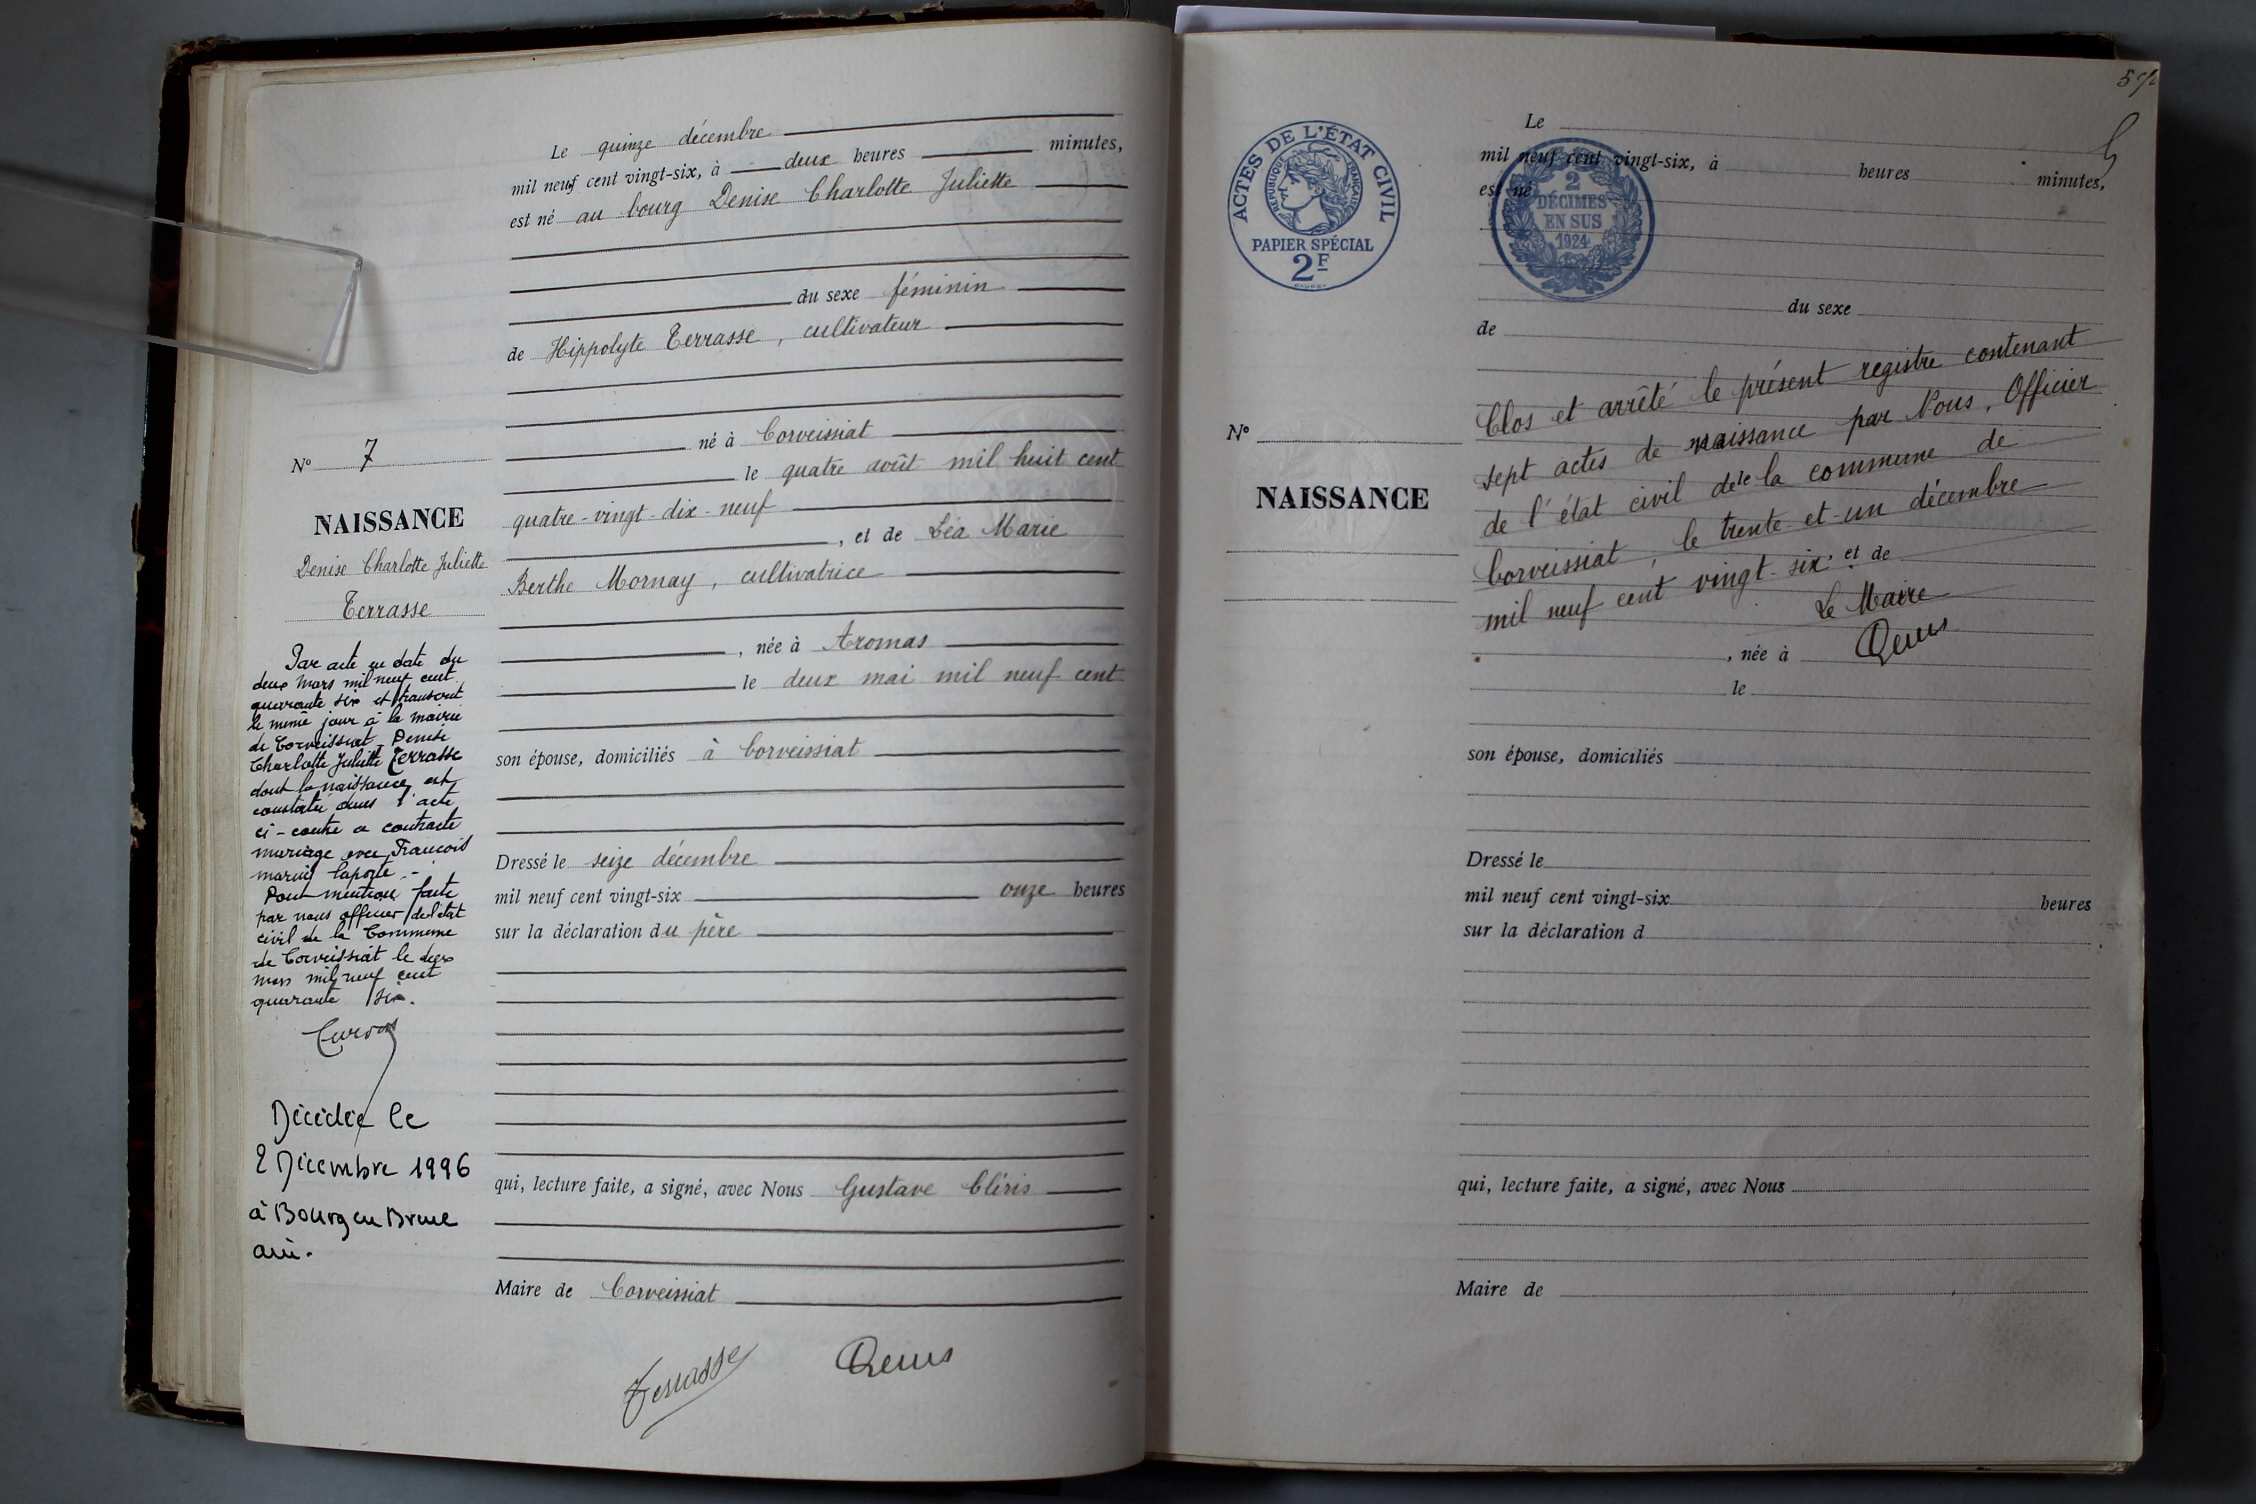 Le quinze décembre
mil neuf cent vingt-six, à deux heures minutes,
est né au bourg Denise Charlotte Juliette
du sexe féminin
de Hippolyte Terrasse, cultivateur
né à Corveissiat
le quatre août mil huit cent
quatre-vingt-dix-neuf
, et de Léa Marie
Berthe Mornay, cultivatrice
, née à Aromas
le deux mai mil neuf cent
son épouse, domiciliés à Corveissiat
Dressé le seize décembre
mil neuf cent vingt-six onze heures
sur la déclaration du père
qui, lecture faite, a signé, avec Nous Gustave Cléris
Maire de Corveissiat
Terrasse
N° 7
NAISSANCE
Denise Charlotte Juliette
Terrasse
Par acte en date du
deux Mars mil neuf cent
quarante six et transcrit
le même jour à la mairie
de Corveissiat Denise
Charlotte Juliette Terrasse
dont la naissance est
constatée dans l'acte
ci-contre a contracté
mariage avec François
marius laporte.-
Pour mention faite
par nous officier de l'état
civil de la Commune
de Corveissiat le deux
mars mil neuf cent
quarante six.
Décédée le
2 Décembre 1996
à Bourg en Bresse
ain.
5
ACTES DE L'ÉTAT CIVIL
RÉPUBLIQUE FRANÇAISE
PAPIER SPÉCIAL
2F
2
DÉCIMES
EN SUS
1924
Le
mil neuf cent vingt-six, à heures minutes,
est né
du sexe
de
Clos et arrêté le présent registre contenant
sept actes de naissance par Nous, Officier
de l'état civil de la commune de
Corveissiat, le trente-et-un décembre
mil neuf cent vingt-six.
, et de
Le Maire
, née à
le
son épouse, domiciliés
Dressé le
mil neuf cent vingt-six heures
sur la déclaration d
qui, lecture faite, a signé, avec Nous
Maire de
N°
NAISSANCE